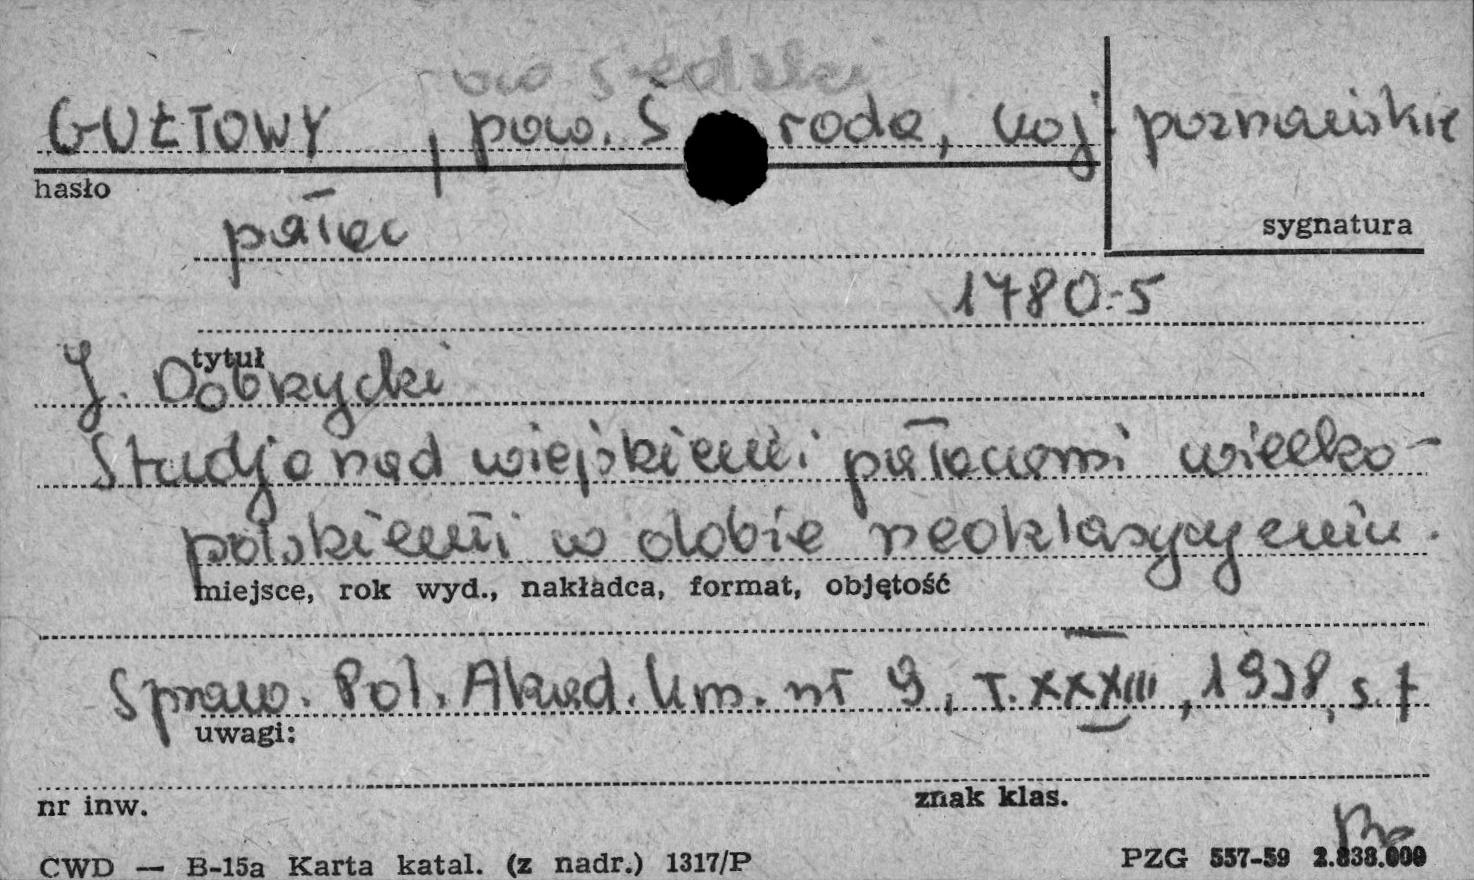 GUŁTOWY, pow. Środa, woj. poznańskie
hasło
pałac
sygnatura
1780-5
tytuł
J. Dobrzycki
Studja nad wiejskiemi pałacami wielko-
polskiemi w dobie neoklasycyzmu.
miejsce, rok wyd., nakładca, format, objętość
Spraw. Pol. Akad. Um. nr 9, T. XXXIII, 1928, s. 7
uwagi:
nr inw.
znak klas.
CWD — B-15a Karta katal. (z nadr.) 1317/P
PZG 557-59 2.838.000